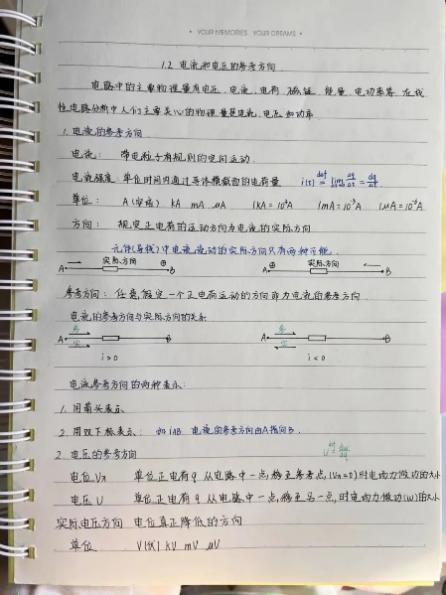 • YOUR MEMORIES YOUR DREAMS •
1.2 电流和电压的参考方向
电路中的主要物理量有电压、电流、电荷、磁链、能量、电功率等。在线
性电路分析中人们主要关心的物理量是电流、电压和功率
1. 电流的参考方向
电流: 带电粒子有规则的空间运动.
电流强度: 单位时间内通过导体横截面的电荷量 i(t) def= lim Δq/Δt = dq/dt
单位: A(安培) kA mA μA 1kA=10³A 1mA=10⁻³A 1μA=10⁻⁶A
方向: 规定正电荷的运动方向为电流的实际方向
元件(导线)中电流流动的实际方向只有两种可能.
A 实际方向 ⊕ B A ⊕ 实际方向 B
参考方向: 任意假定一个正电荷运动的方向即为电流的参考方向
电流的参考方向与实际方向的关系
A 参 实 B A 参 实 B
i>0 i<0
电流参考方向的两种表示:
1. 用箭头表示
2. 用双下标表示: 如iAB 电流的参考方向由A指向B.
2. 电压的参考方向
电位 单位正电荷q从电路中一点移至参考点,时电场力做功的大小
电压U 单位正电荷q从电路中一点,移至另一点,时电场力做功(W)的大小
实际电压方向 电位真正降低的方向
单位 V(伏) kV mV μV